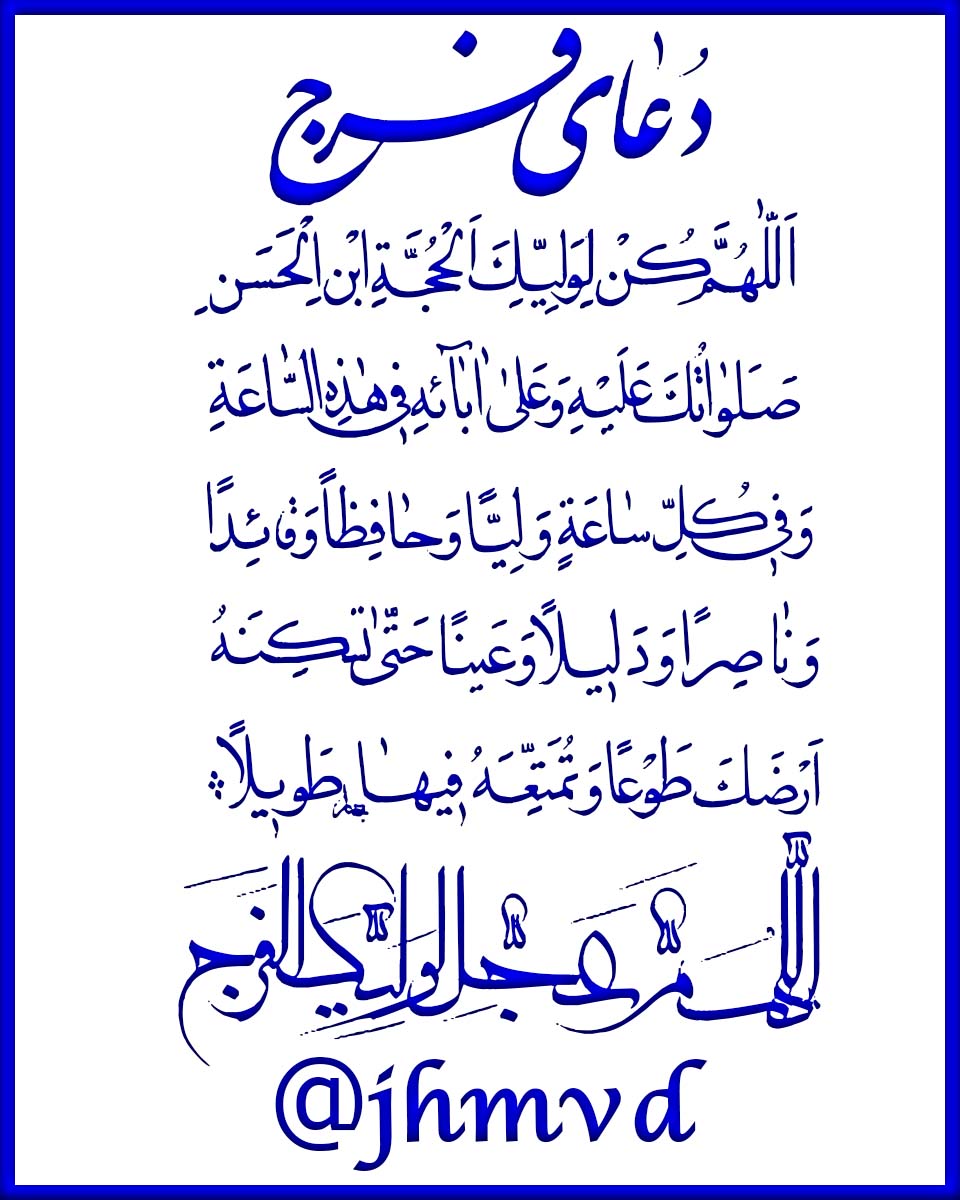 دُعٰای فرج
اَللّٰهُمَّ كُنْ لِوَلِیِّكَ اَلْحُجَّةِ ابْنِ اِلْحَسَنِ
صَلَوٰاتُكَ عَلَیْهِ وَعَلىٰ اٰبٰآئِهِ فِی هٰذِهِ السّٰاعَةِ
وَفِی كُلِّ سٰاعَةٍ وَلِیًّا وَحٰافِظاً وَقٰائِدًا
وَنٰاصِرًا وَدَلِیلاً وَعَیْنًا حَتّٰى تُسْكِنَهُ
اَرْضَكَ طَوْعًا وَتُمَتِّعَهُ فِیهٰا طَوِیلاً
اللّٰهم عجل لولیک الفرج
@jhmvd